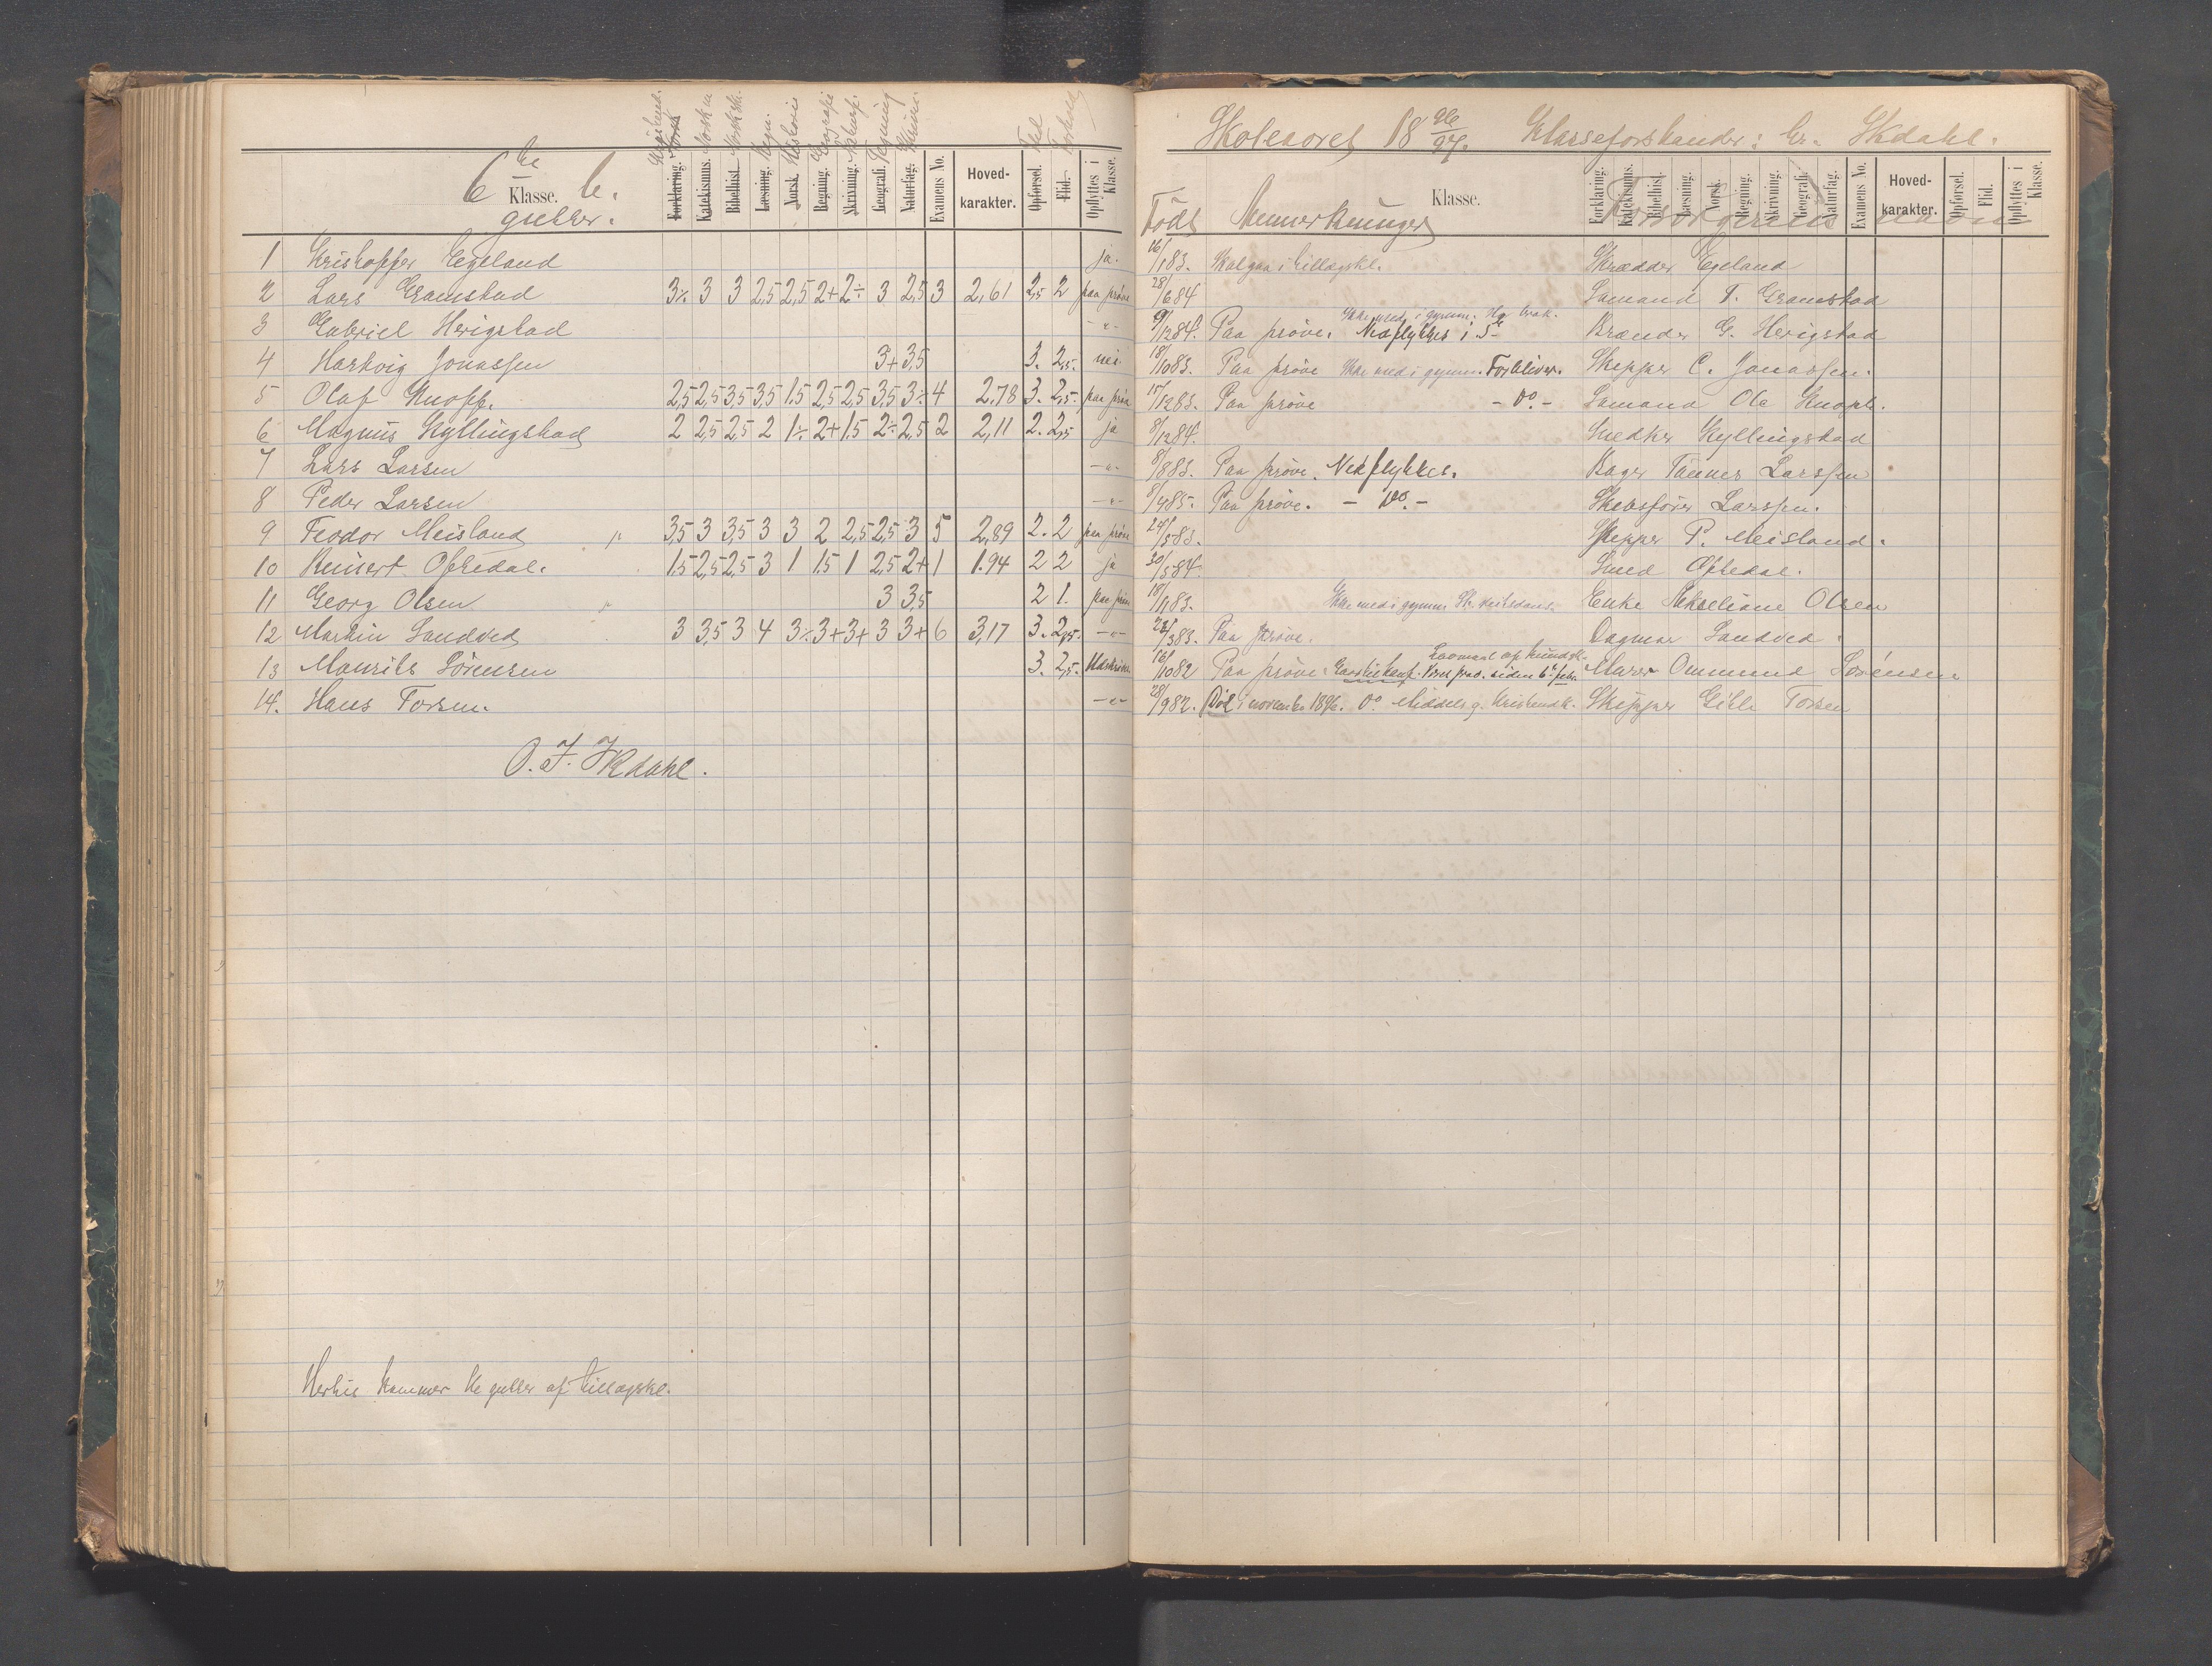 6te Klasse. b.
gutter.
Forklaring. Katekismus. Bibelhist. Læsning. Norsk. Regning. Skrivning. Geografi. Naturfag. Examens No. Hoved-karakter. Opførsel. Flid. Opflyttes i Klasse.
Norsk m. Norsk sk. Regn. Historie Geografi Naturf. Tegning
1 Kristoffer Egeland ja.
2 Lars Gramstad 3÷ 3 3 2,5 2,5 2+ 2÷ 3 2,5 3 2,61 2,5 2 paa prøve
3 Gabriel Herigstad -"-
4 Hartvig Jonassen 3+ 3,5 3. 2,5. nei
5 Olaf Knoph. 2,5 2,5 3,5 3,5 1,5 2,5 2,5 3,5 3÷ 4 2,78 3. 2,5. paa prøve
6 Magnus Kyllingstad 2 2,5 2,5 2 1÷ 2+ 1,5 2÷ 2,5 2 2,11 2. 2,5 ja
7 Lars Larsen -"-
8 Peder Larsen -"-
9 Feodor Meisland 3,5 3 3,5 3 3 2 2,5 2,5 3 5 2,89 2. 2 paa prøve
10 Reinert Oftedal. 1,5 2,5 2,5 3 1 1,5 1 2,5 2+ 1 1.94 2 2 ja
11 Georg Olsen 3 3,5 2 1. paa prøve
12 Martin Sandved 3 3,5 3 4 3÷ 3+ 3+ 3 3+ 6 3,17 3. 2,5. -"-
13 Maurits Sørensen 3. 2,5. Udskreven
14. Hans Torsen. -"-
O. F. Skdahl.
Hertil kommer 16 gutter af tillægskl.
Skoleaaret 18 96/97. Klasseforstander: Hr. Skdahl.
Klasse.
Forklaring. Katekismus. Bibelhist. Læsning. Norsk. Regning. Skrivning. Geografi. Naturfag. Examens No. Hoved-karakter. Opførsel. Flid. Opflyttes i Klasse.
Født Anmerkninger Forsørgerens navn
16/1 83. Skal gaa i tillægskl. Skrædder Egeland
28/6 84 Sømand T. Gramstad
Ikke med i gymn. Hg. brok.
9/12 84. Paa prøve. Nedflyttes i 5te Brænder G. Herigstad
18/10 83. Paa prøve Ikke med i gymn. Forbliver. Skipper C. Jonassen.
15/12 83. Paa prøve - Do. - Sømand Ole Knoph.
8/12 84. Snedker Kyllingstad
8/8 83. Paa prøve. Nedflyttes. Bager Tønnes Larssen
8/4 85. Paa prøve. - Do. - Skibsfører Larssen.
24/5 83. Skipper P. Meisland.
30/5 84. Smed Oftedal.
18/11 83. Ikke med i gymn. Enke Olsen
22/3 83. Paa prøve. Dagmar Sandved.
16/10 82 Paa prøve. siden 6te febr. Murer Ommund Sørensen
28/9 82. Død i november 1896. Do. Middels g. Kristendk. Skipper Gitle Torsen